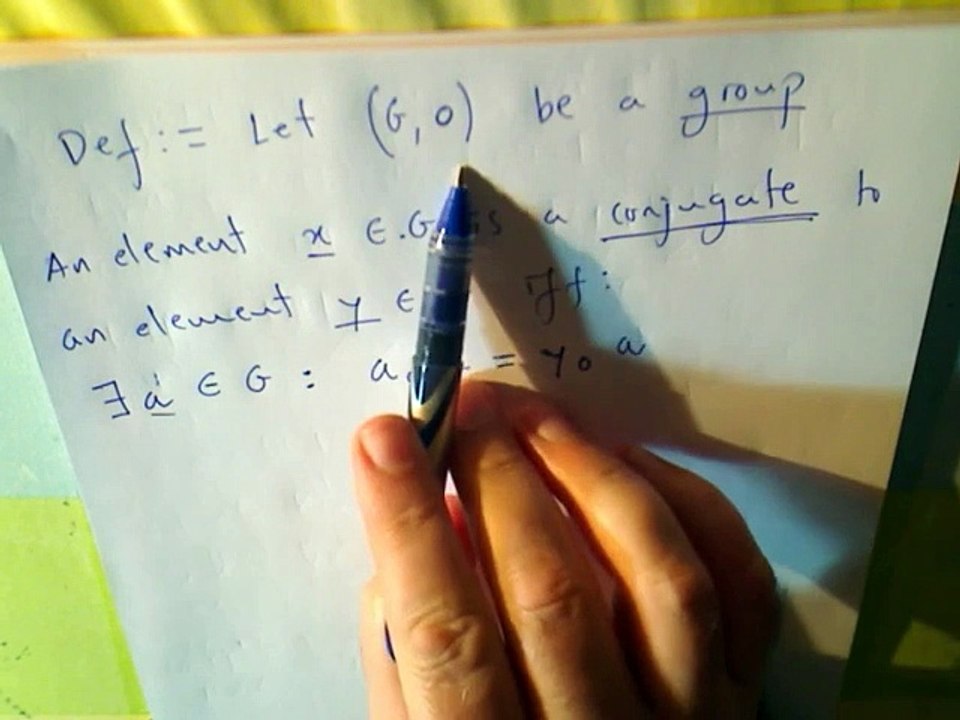 Def := Let (G, o) be a group
An element x ∈ G is a conjugate to
an element y ∈ Iff :
∃ a ∈ G : a = y o a